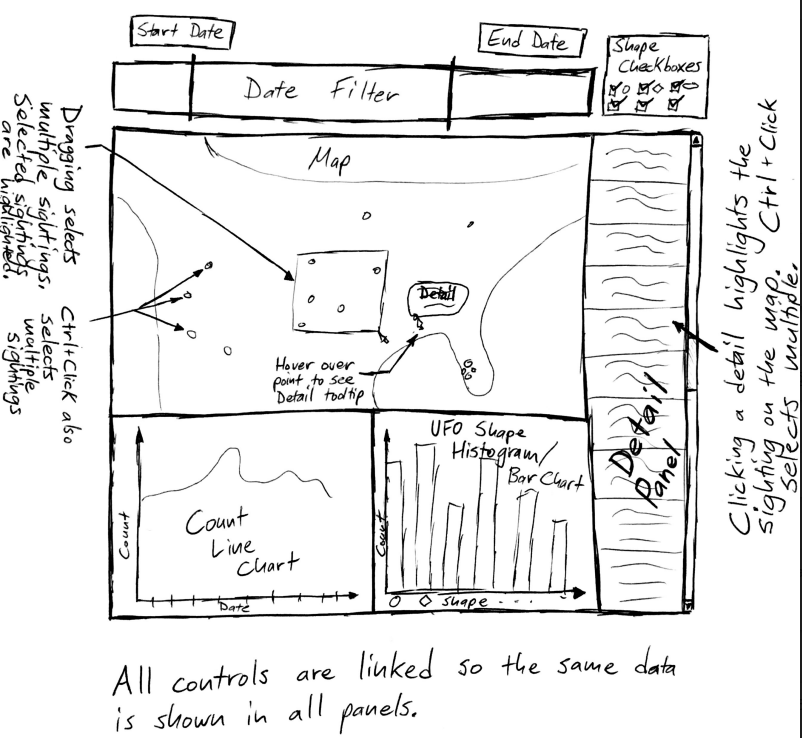 Start Date
End Date
Date Filter
Shape
Checkboxes
Map
Dragging selects
multiple sightings.
Selected sightings
are highlighted.
Ctrl+Click also
selects
multiple
sightings
Detail
Hover over
point to see
Detail tooltip
Clicking a detail highlights the
sighting on the map. Ctrl+Click
selects multiple.
Detail
Panel
Count
Count
Line
Chart
Date
UFO Shape
Histogram/
Bar Chart
Count
Shape ...
All controls are linked so the same data
is shown in all panels.